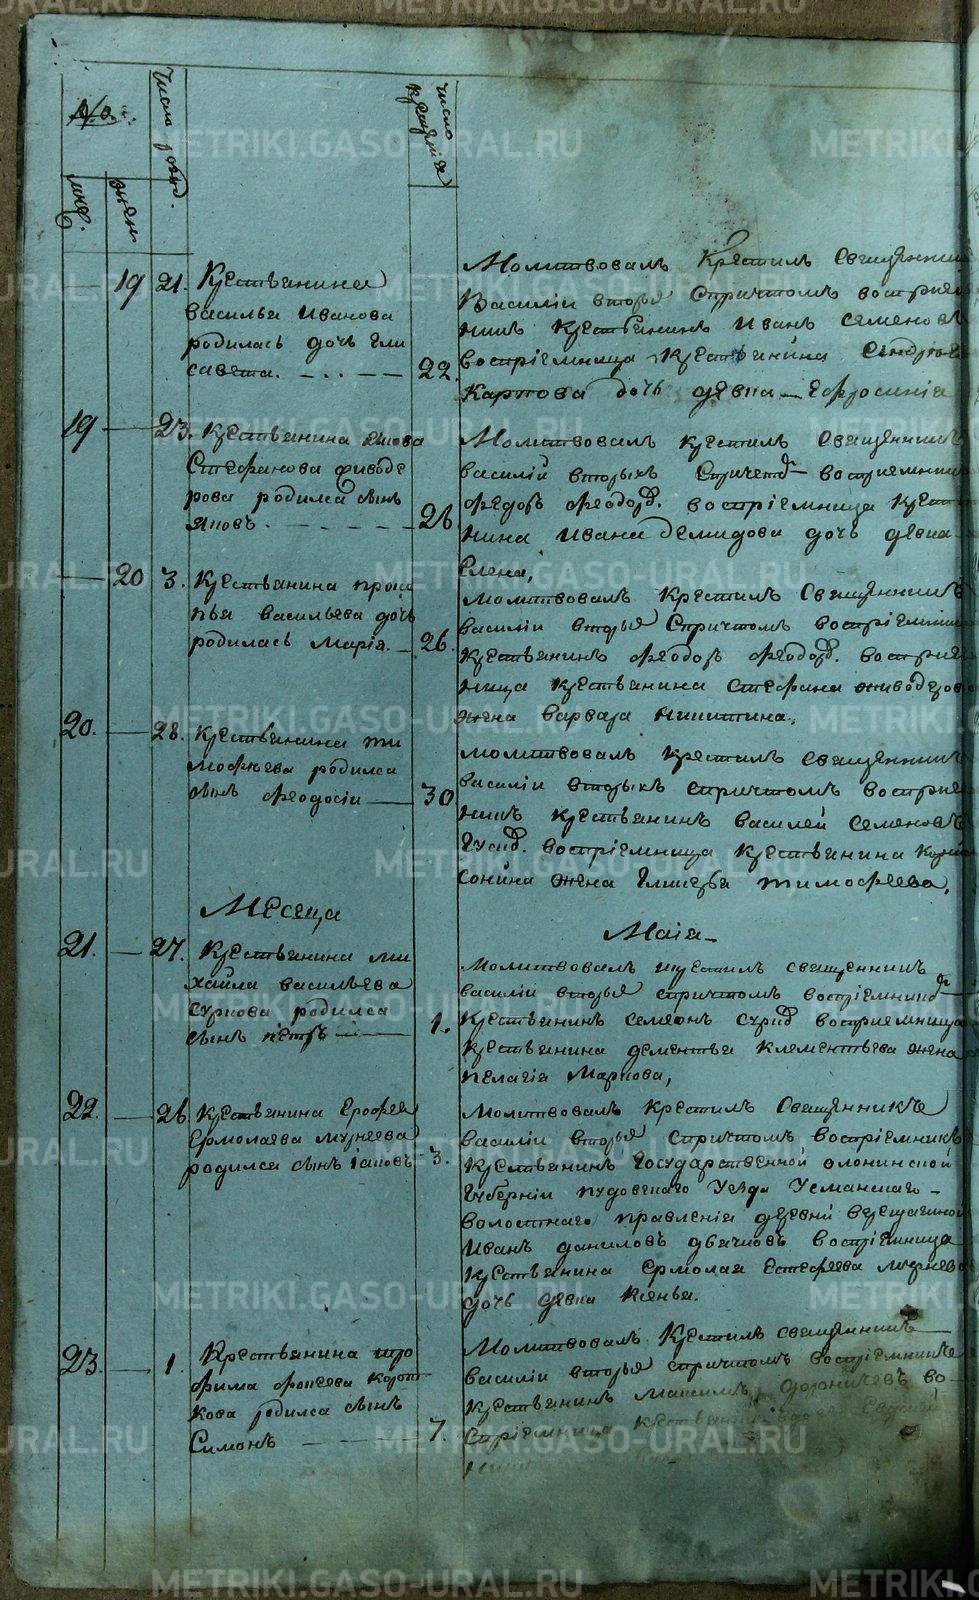 №
Число рожд.
число
крещенія
муж.
жен.
19 21. Крестьянина
василья Иванова
родилась дочь ели
савета. 22.
Молитвовалъ Крестилъ Священник
Василіи вторы Спричтомъ восприем
никъ Крестьянинъ Иванъ Семеновъ
воспріемница Крестьянина
Карпова дочь девка Ефросинія
19 23. Крестьянина
Стефанова живоде
рова родился сынъ
яковъ. 26.
Молитвовалъ крестилъ Священникъ
василій вторыхъ Спричетд. восприемник
Федоръ Феодорд. воспріемница Крестья
нина Ивана Демидова дочь девка
Елена,
20 3. Крестьянина проко
пья васильева дочь
родилась Марія. 26.
Молитвовалъ Крестилъ Священникъ
василіи вторы Спричтомъ воспріемник
Крестьянинъ Феодоръ Феодорд. восприем
ница Крестьянина Стефана живодеров
жена варвара Никитина.
20. 28. Крестьянина ти
мофеева родился
сынъ Феодосіи 30
Молитвовалъ Крестилъ Священникъ
василіи вторыхъ Спричтомъ восприем
никъ Крестьянинъ василей Семеновъ
воспріемница Крестьянина
жена тимофеева,
Месеца Маія
21. 27. Крестьянина ми
хаила васильева
суркова родился
сынъ петръ 1.
Молитвовалъ крестилъ священникъ
василіи вторы спричтомъ воспріемникд
Крестьянинъ семеонъ воспріемница
Крестьянина дементья Клементьева жена
пелагія Маркова,
22. 26. Крестьянина Ерофея
Ермолаева мурнеева
родился сынъ іаковъ 3.
Молитвовалъ Крестилъ Священникъ
василіи вторы спричтомъ воспріемникъ
Крестьянинъ Государственной олонинской
Губерніи пудовскаго Уезда Усманскаго
волостнаго правленія деревни верещагиной
Иванъ даниловъ воспріемница
Крестьянина Ермолая мурнева
дочь девка Ксенья.
23. 1. Крестьянина тро
фима Корот
кова родился сынъ
Симонъ 7.
Молитвовалъ Крестилъ священникъ
василіи вторы спричтомъ воспріемникъ
Крестьянинъ Максимъ во
спріемница
METRIKI.GASO-URAL.RU